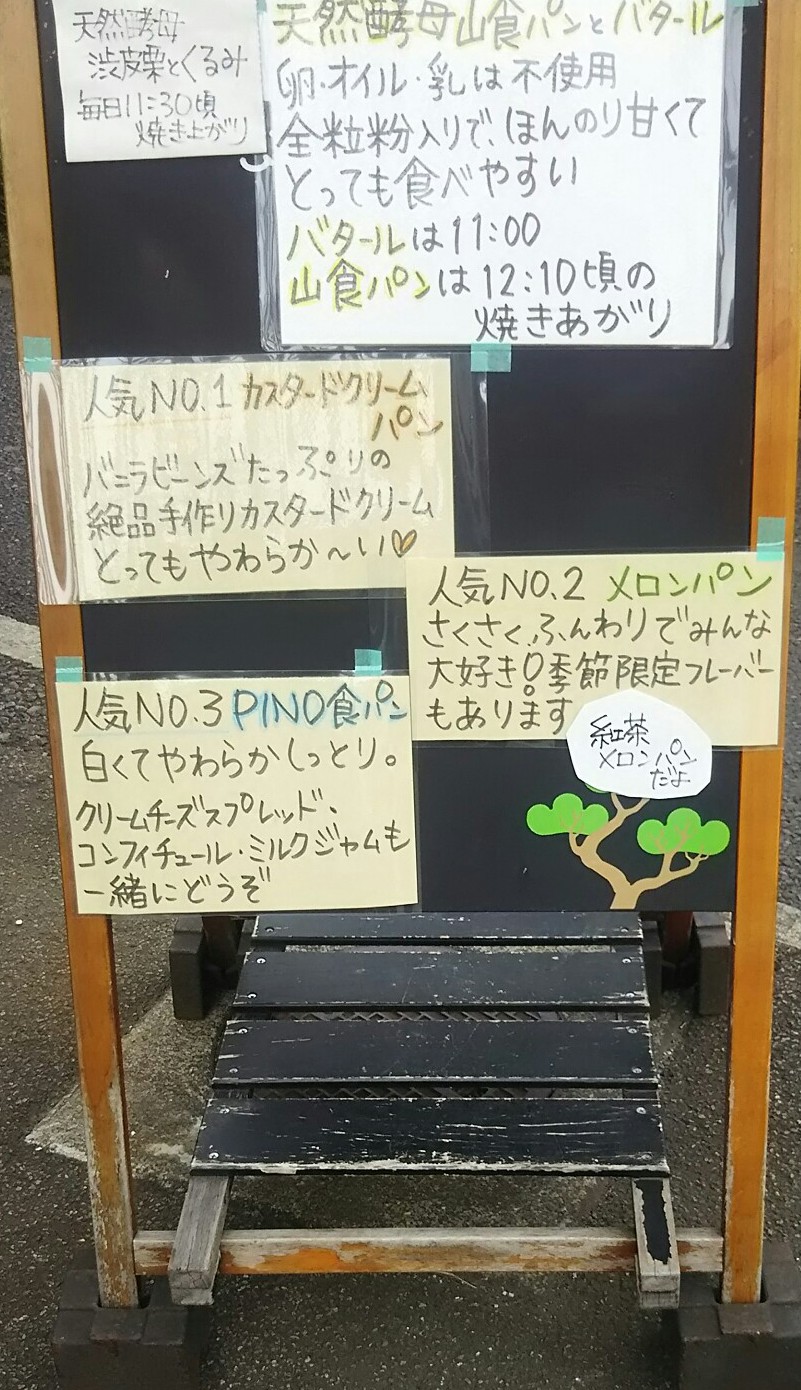 天然酵母
渋皮栗とくるみ
毎日11:30頃
焼き上がり
天然酵母山食パンとバタール
卵・オイル・乳は不使用
全粒粉入りで、ほんのり甘くて
とっても食べやすい
バタールは11:00
山食パンは12:10頃の
焼きあがり
人気NO.1 カスタードクリーム
パン
バニラビーンズたっぷりの
絶品手作りカスタードクリーム
とってもやわらか〜い♡
人気NO.2 メロンパン
さくさく、ふんわりでみんな
大好き!季節限定フレーバー
もあります
紅茶
メロンパン
だよ
人気NO.3 PINO食パン
白くてやわらかしっとり。
クリームチーズスプレッド、
コンフィチュール・ミルクジャムも
一緒にどうぞ